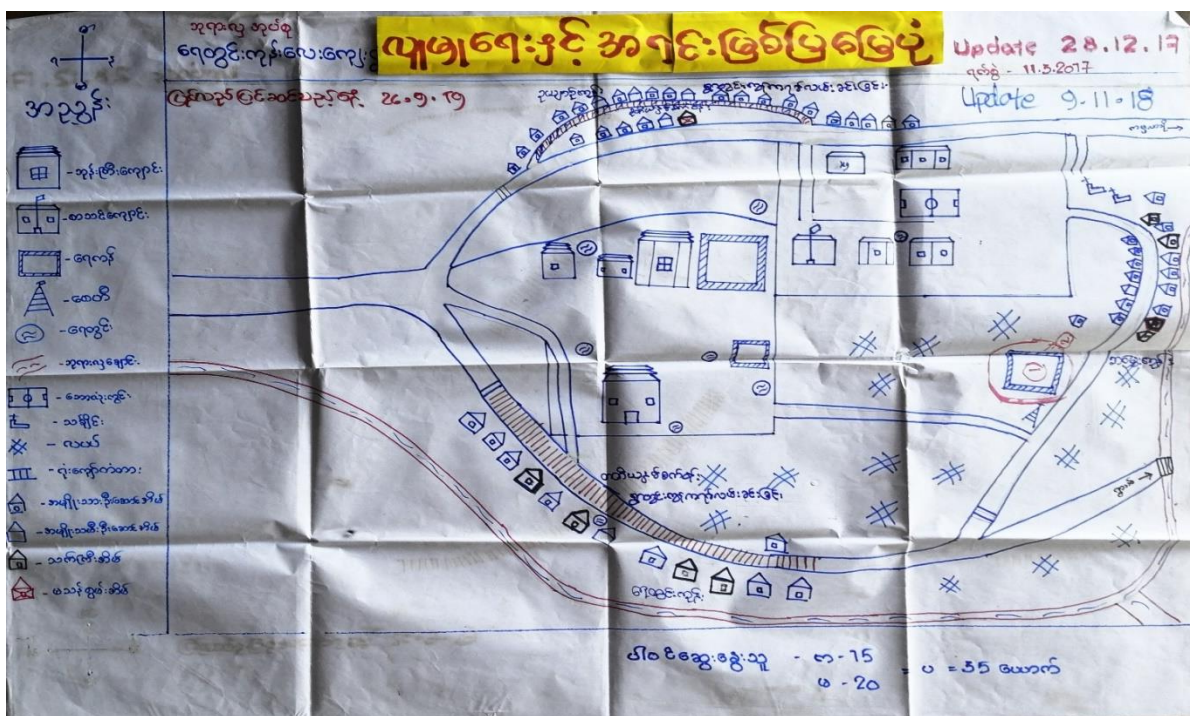 ဘုရားလှ အုပ်စု
ရေတွင်းကုန်းလေးကျေး
လူမှုရေးနှင့် အရင်းမြစ်ပြမြေပုံ
Update 28.12.17
ရက်စွဲ - 11.5.2017
Update 9.11.18
ပြန်လည်ပြင်ဆင်သည့်ရက် 26.9.19
အညွှန်း
- ဘုန်းကြီးကျောင်း
- စာသင်ကျောင်း
- ရေကန်
- စေတီ
- ရေတွင်း
- ဘုရားလှချောင်း
- ဘောလုံးကွင်း
- သင်္ချိုင်း
- လယ်
- ရုံးကျော်တံတား
- အမျိုးသားဦးဆောင်အိမ်
- အမျိုးသမီးဦးဆောင်အိမ်
- သက်ကြီးအိမ်
- မသန်စွမ်းအိမ်
ရွာတွင်းကွန်ကရစ်လမ်းခင်းခြင်း
ရွာတွင်းကွန်ကရစ်လမ်းခင်းခြင်း
ရေတွင်းကုန်း
ပါဝင်ဆွေးနွေးသူ - ကျ - 15
မ - 20
= ပ = 35 ယောက်